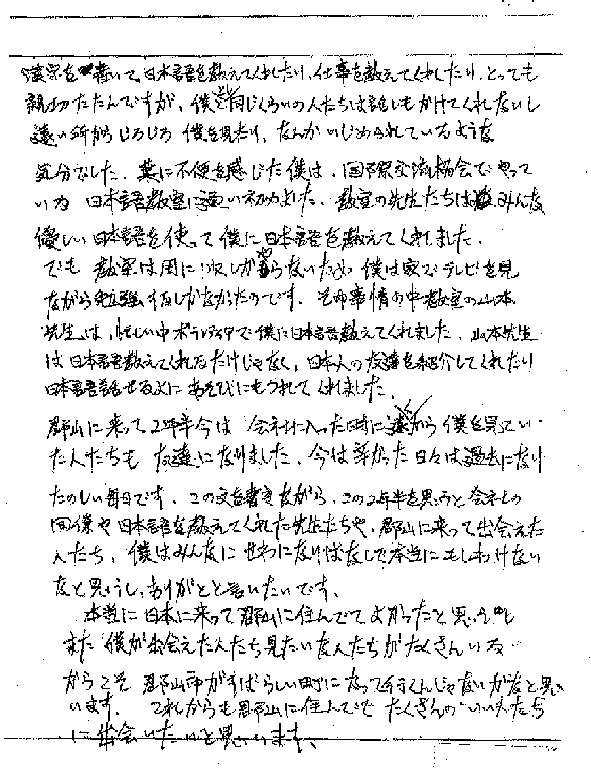 漢字を書いて日本語を教えてくれしたり、仕事を教えてくれしたり、とっても
親切だたんですが、僕と同じくらいの人たちは話しもかけてくれないし
遠い所からじろじろ僕を見たり、なんかいじめられているような
気分でした。業に不便を感じた僕は、国際交流協会でやって
いる日本語教室に通い初めました。教室の先生たちはみんな
優しい日本語を使って僕に日本語を教えてくれました。
でも教室は周に1次しかやらないため僕は家でテレビを見
ながら勉強するしかなかたのです。その事情の中教室の山本
先生は、忙しい中ボランティアで僕に日本語教えてくれました。山本先生
は日本語教えてくれるだけじゃなく、日本人の友達を紹介してくれたり
日本語話せるよにあそびにもつれてくれました。
郡山に来って2年半今は会社に入った時に遠から僕を見てい
た人たちも友達になりました。今は辛かった日々は過去になり
たのしい毎日です。この文書書きながら、この2年半を思うと会社の
同僚や日本語を教えてくれた先生たちや、郡山に来って出会えた
人たち、僕はみんなにせわになりぱなしで本当にもしわけない
なと思うし、ありがとと言いたいです。
本当に日本に来って郡山に住んでてよかったと思うし
また僕が出会えた人たち見たい友人たちがたくさんいる
からこそ郡山市がすばらしい町になって行くんじゃないかなと思
います。これからも郡山に住んでて たくさんのいい人たち
に出会いたいと思います。